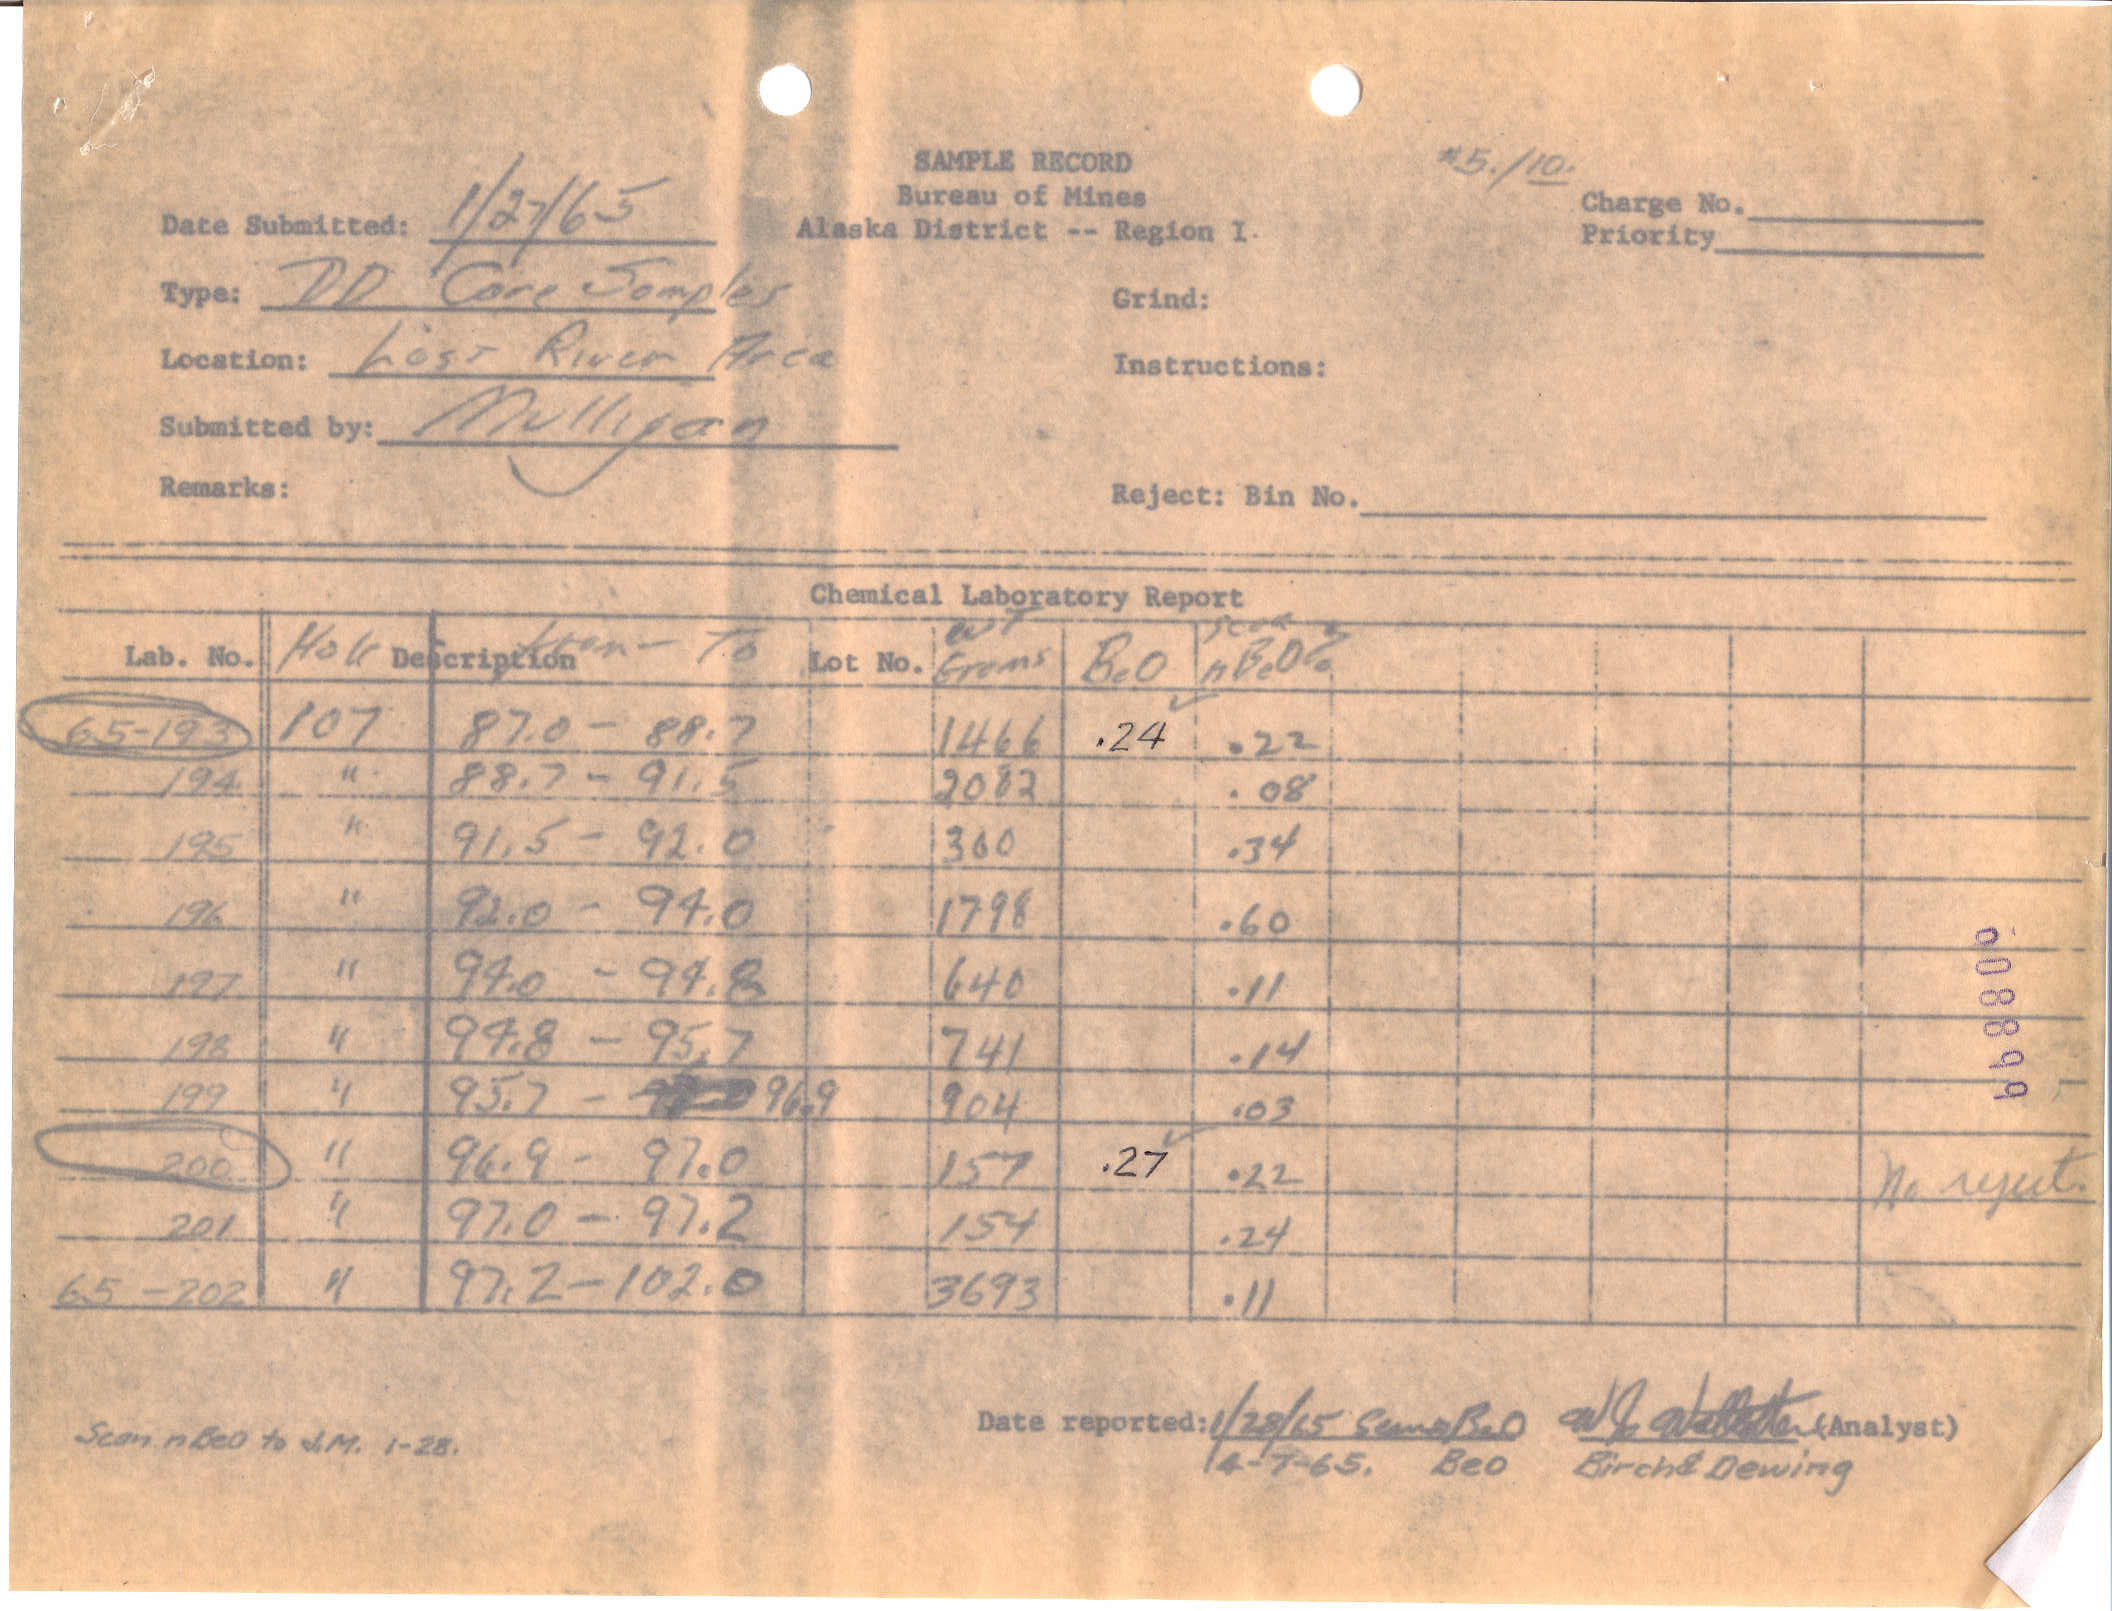 SAMPLE RECORD
#5./10.
Bureau of Mines
Charge No.
Date Submitted: 1/27/65
Alaska District -- Region I.
Priority
Type: DD Core Samples
Grind:
Location: Lost River Area
Instructions:
Submitted by: Mulligan
Remarks:
Reject: Bin No.
Chemical Laboratory Report
Lab. No. Hole Description From - To Lot No. WT Grams BeO Scan nBeO%
65-193 107 87.0 - 88.7 1466 .24 .22
194 " 88.7 - 91.5 2082 .08
195 " 91.5 - 92.0 300 .34
196 " 92.0 - 94.0 1798 .60
197 " 94.0 - 94.8 640 .11
198 " 94.8 - 95.7 741 .14
199 " 95.7 - 96.9 904 .03
200 " 96.9 - 97.0 157 .27 .22 No reject.
201 " 97.0 - 97.2 154 .24
65-202 " 97.2 - 102.0 3693 .11
008899
Date reported: 1/28/65 Scan nBeO (Analyst)
Scan nBeO to J.M. 1-28.
4-7-65. BeO Birch & Dewing